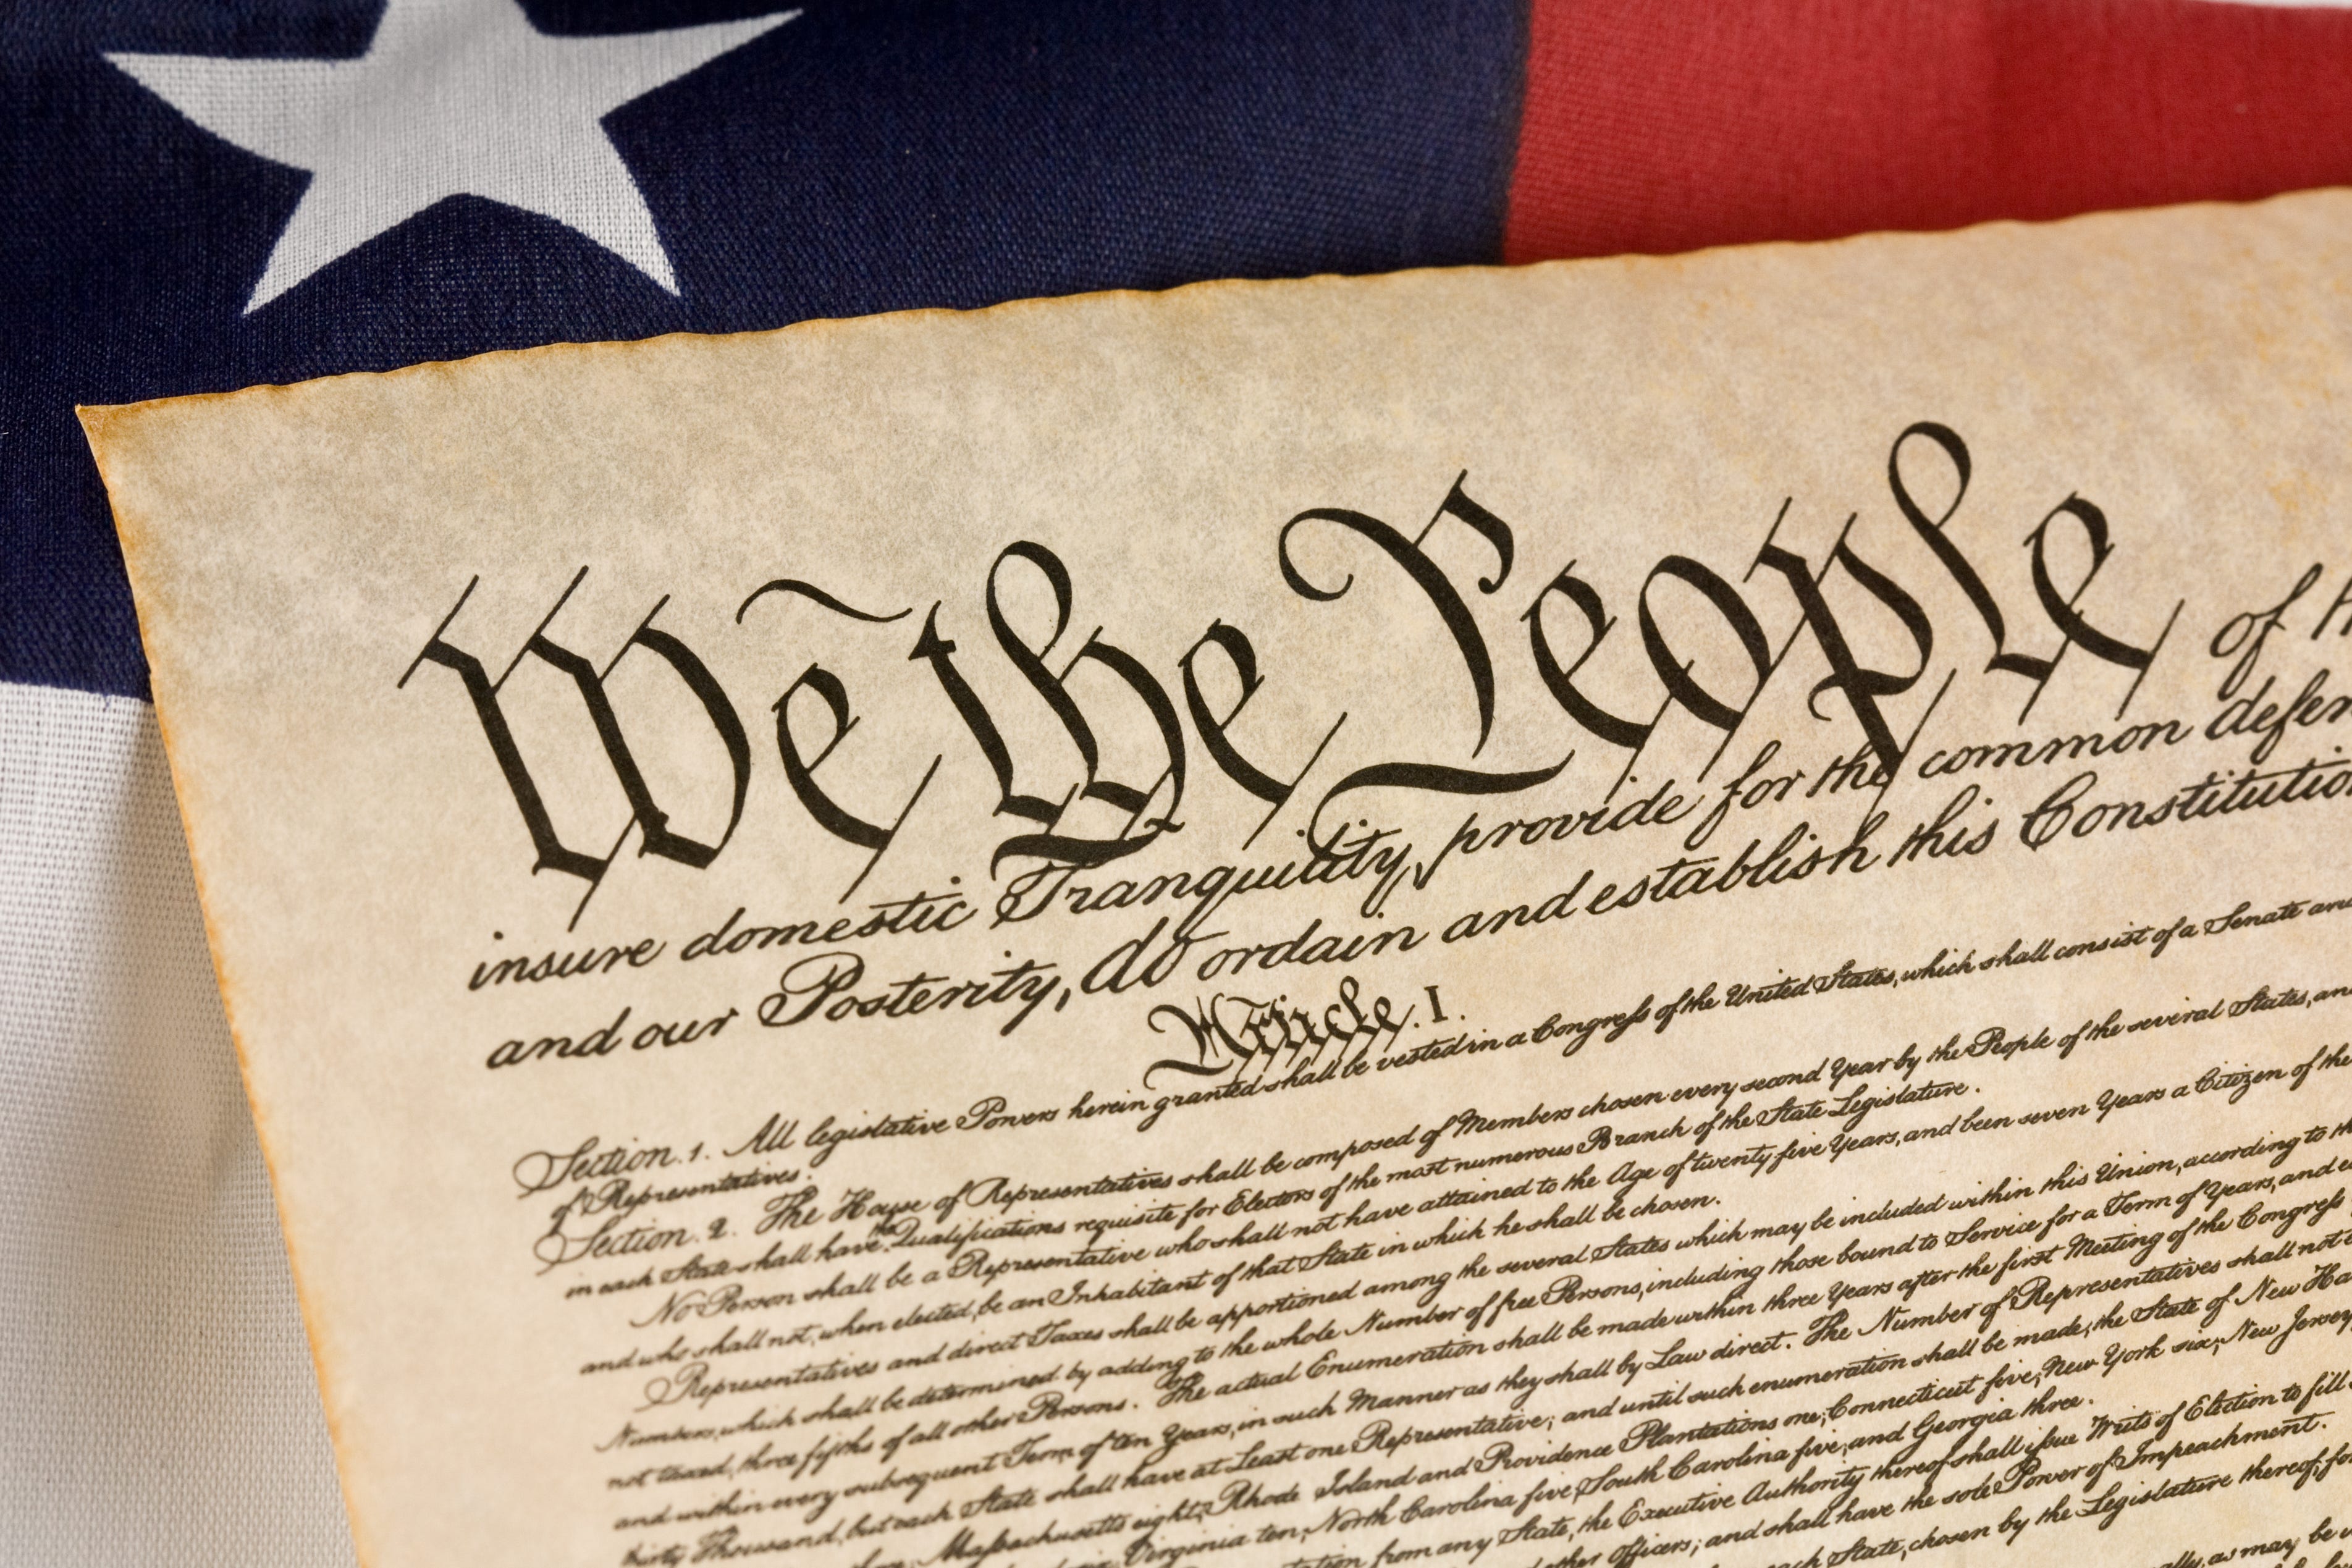 We the People of
insure domestic Tranquility, provide for the common defen
and our Posterity, do ordain and establish this Constitutio
Article. I.
Section. 1. All legislative Powers herein granted shall be vested in a Congress of the United States, which shall consist of a Senate and
of Representatives.
Section. 2. The House of Representatives shall be composed of Members chosen every second Year by the People of the several States, and
in each State shall have the Qualifications requisite for Electors of the most numerous Branch of the State Legislature.
No Person shall be a Representative who shall not have attained to the Age of twenty five Years, and been seven Years a Citizen of the
and who shall not, when elected, be an Inhabitant of that State in which he shall be chosen.
Representatives and direct Taxes shall be apportioned among the several States which may be included within this Union, according to the
Numbers, which shall be determined by adding to the whole Number of free Persons, including those bound to Service for a Term of Years, and
not taxed, three fifths of all other Persons. The actual Enumeration shall be made within three Years after the first Meeting of the Congress
and within every subsequent Term of ten Years, in such Manner as they shall by Law direct. The Number of Representatives shall not
thirty Thousand, but each State shall have at Least one Representative; and until such enumeration shall be made, the State of New Ha
Massachusetts eight, Rhode Island and Providence Plantations one, Connecticut five, New York six, New Jersey
Virginia ten, North Carolina five, South Carolina five, and Georgia three.
from any State, the Executive Authority thereof shall issue Writs of Election to fill
other Officers; and shall have the sole Power of Impeachment.
State, chosen by the Legislature thereof, for
as may be